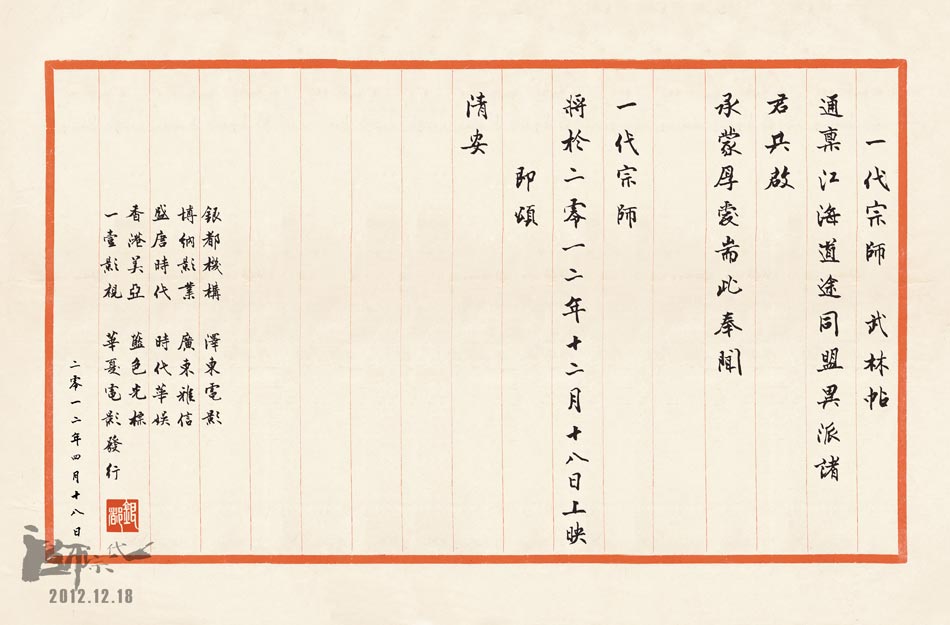 一代宗師 武林帖
通稟江海道途同盟異派諸
君共啟
承蒙厚愛耑此奉聞
一代宗師
將於二零一二年十二月十八日上映
即頌
清安
銀都機構 澤東電影
博納影業 廣東雅信
盛唐時代 時代華娛
香港美亞 藍色光標
一壹影視 華夏電影發行
二零一二年四月十八日
銀都
一代宗師
2012.12.18